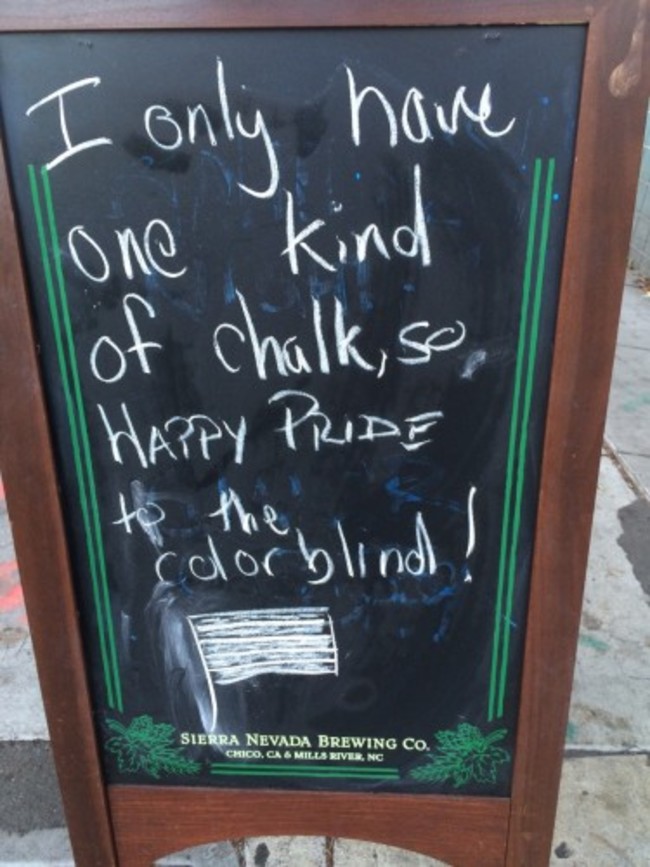 I only have
one kind
of chalk, so
HAPPY PRIDE
to the
colorblind!
SIERRA NEVADA BREWING CO.
CHICO, CA & MILLS RIVER, NC